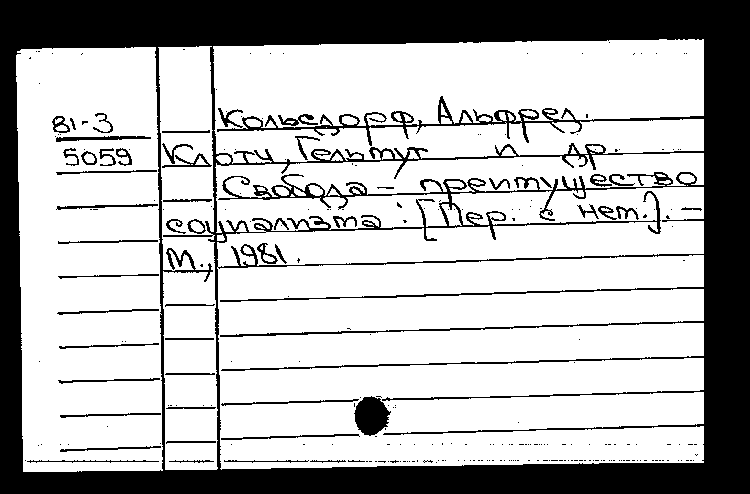 81-3 Кольсдорф, Альфред.
5059 Клоти, Гельмут и др.
Свобода - преимущество
социализма : [Пер. с нем.]. -
М., 1981.